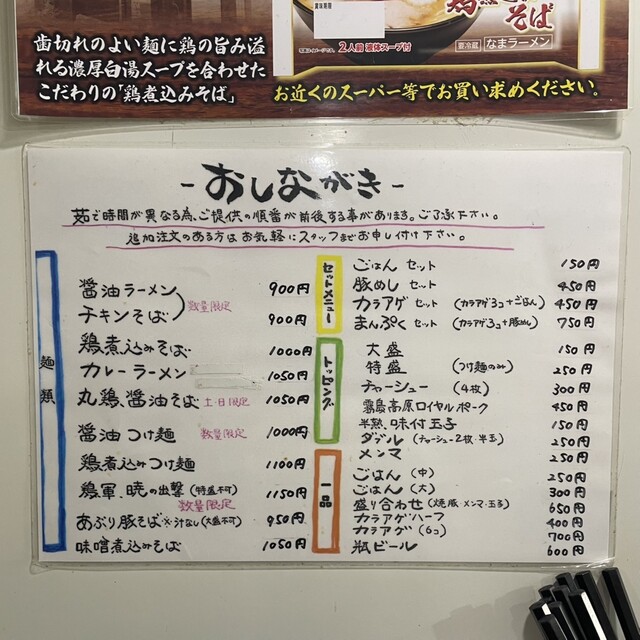 歯切れのよい麺に鶏の旨み溢
れる濃厚白湯スープを合わせた
こだわりの「鶏煮込みそば」
そば
2人前 液体スープ付
要冷蔵 なまラーメン
お近くのスーパー等でお買い求めください。
- おしながき -
茹で時間が異なる為、ご提供の順番が前後する事があります。ご了承下さい。
追加注文のある方はお気軽にスタッフまでお申し付け下さい。
麺類
醤油ラーメン 900円
チキンそば 数量限定 900円
鶏煮込みそば 1000円
カレーラーメン 1050円
丸鶏、醤油そば 土・日限定 1050円
醤油つけ麺 数量限定 1000円
鶏煮込みつけ麺 1100円
鶏軍、暁の出撃 (特盛不可) 数量限定 1150円
あぶり豚そば ※汁なし(大盛不可) 950円
味噌煮込みそば 1050円
セットメニュー
ごはん セット 150円
豚めし セット 450円
カラアゲ セット (カラアゲ3コ+ごはん) 450円
まんぷく セット (カラアゲ3コ+豚めし) 750円
トッピング
大盛 150円
特盛 (つけ麺のみ) 250円
チャーシュー (4枚) 300円
霧島高原ロイヤルポーク 450円
半熟、味付玉子 150円
ダブル (チャーシュー2枚・半玉) 250円
メンマ 250円
一品
ごはん (中) 250円
ごはん (大) 300円
盛り合わせ (焼豚 メンマ・玉子) 650円
カラアゲハーフ 400円
カラアゲ (6コ) 700円
瓶ビール 600円